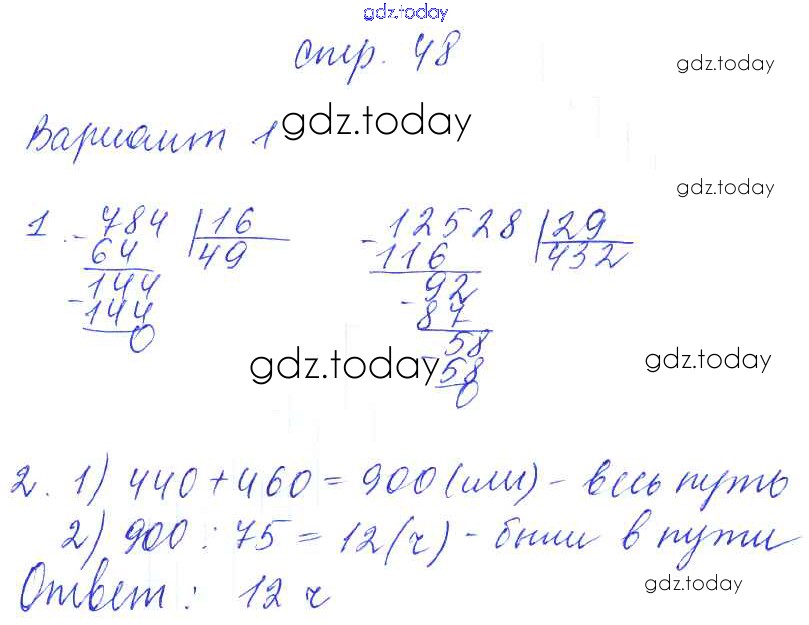 gdz.today
стр. 48
gdz.today
Вариант 1 gdz.today
gdz.today
1. - 784 | 16 - 12528 | 29
64 49 116 432
144 92
- 144 - 87
0 58
gdz.today - 58 gdz.today
0
2. 1) 440 + 460 = 900 (км) - весь путь
2) 900 : 75 = 12 (ч) - были в пути
Ответ: 12 ч gdz.today